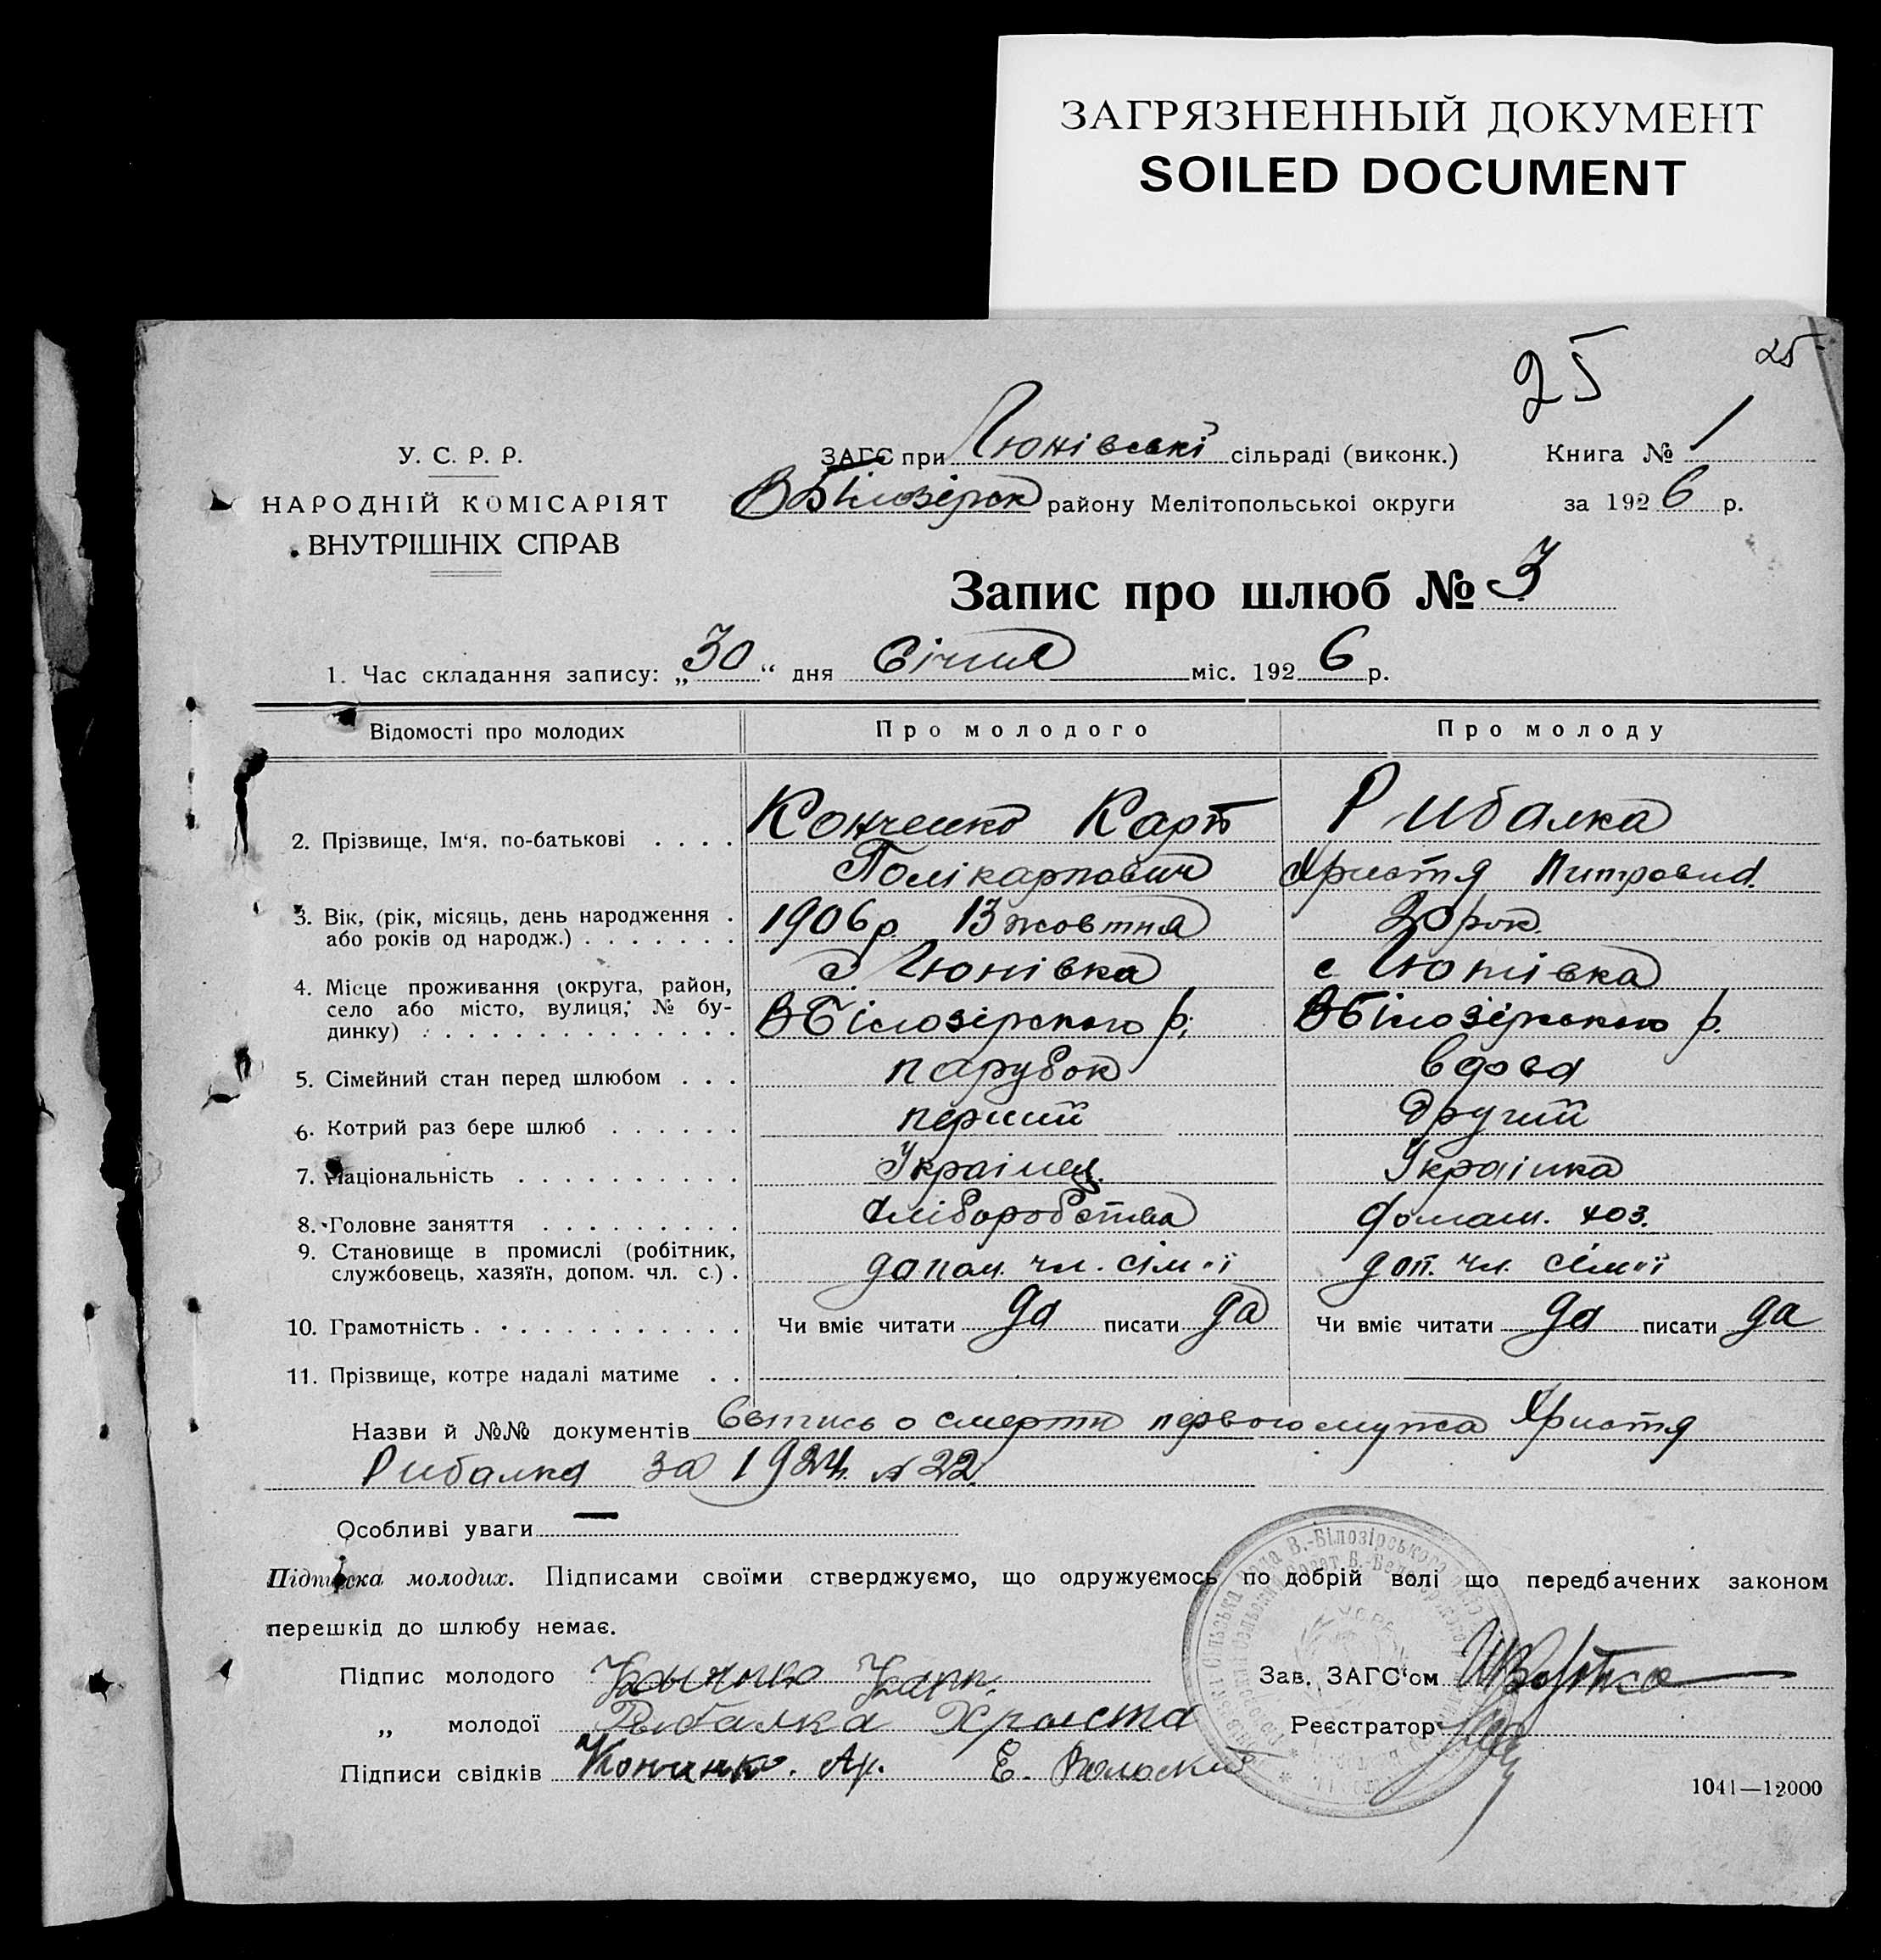 ЗАГРЯЗНЕННЫЙ ДОКУМЕНТ
SOILED DOCUMENT
25 25
У. С. Р. Р.
НАРОДНІЙ КОМІСАРІЯТ
ВНУТРІШНІХ СПРАВ
ЗАГС при Люнівські сільраді (виконк.)
В Білозірськ району Мелітопольськоі округи
Книга № 1
за 1926 р.
Запис про шлюб № 3
1. Час складання запису: „30“ дня Січня міс. 1926 р.
Відомості про молодих Про молодого Про молоду
2. Прізвище, Ім'я, по-батькові . . . . Конченко Карп Рибалка
Полікарпович Христя
3. Вік, (рік, місяць, день народження . 1906 р. 13 жовтня 30 рок.
або років од народж.) . . . . . . .
4. Місце проживання (округа, район, с. Люнівка с Люнівка
село або місто, вулиця; № бу- В Білозірського р. В Білозірського р.
динку) . . . . . . . . . . . . . .
5. Сімейний стан перед шлюбом . . . парубок вдова
6. Котрий раз бере шлюб . . . . . . перший другий
7. Національність . . . . . . . . . . Украінец Украінка
8. Головне заняття . . . . . . . . . Хліборобства домаш. хоз.
9. Становище в промислі (робітник, допом. чл. сім'ї доп. чл. сім'ї
службовець, хазяїн, допом. чл. с.) .
10. Грамотність . . . . . . . . . . . . Чи вміє читати да писати да Чи вміє читати да писати да
11. Прізвище, котре надалі матиме . .
Назви й №№ документів Випись о смерти первого мужа Христя
Рибалка за 1924 г. № 22.
Особливі уваги —
Підписка молодих. Підписами своїми стверджуємо, що одружуємось по добрій волі що передбачених законом
перешкід до шлюбу немає.
Підпис молодого Карп. Зав. ЗАГС'ом
„ молодої Рыбалка Христа Реєстратор
Підписи свідків Е.
1041—12000